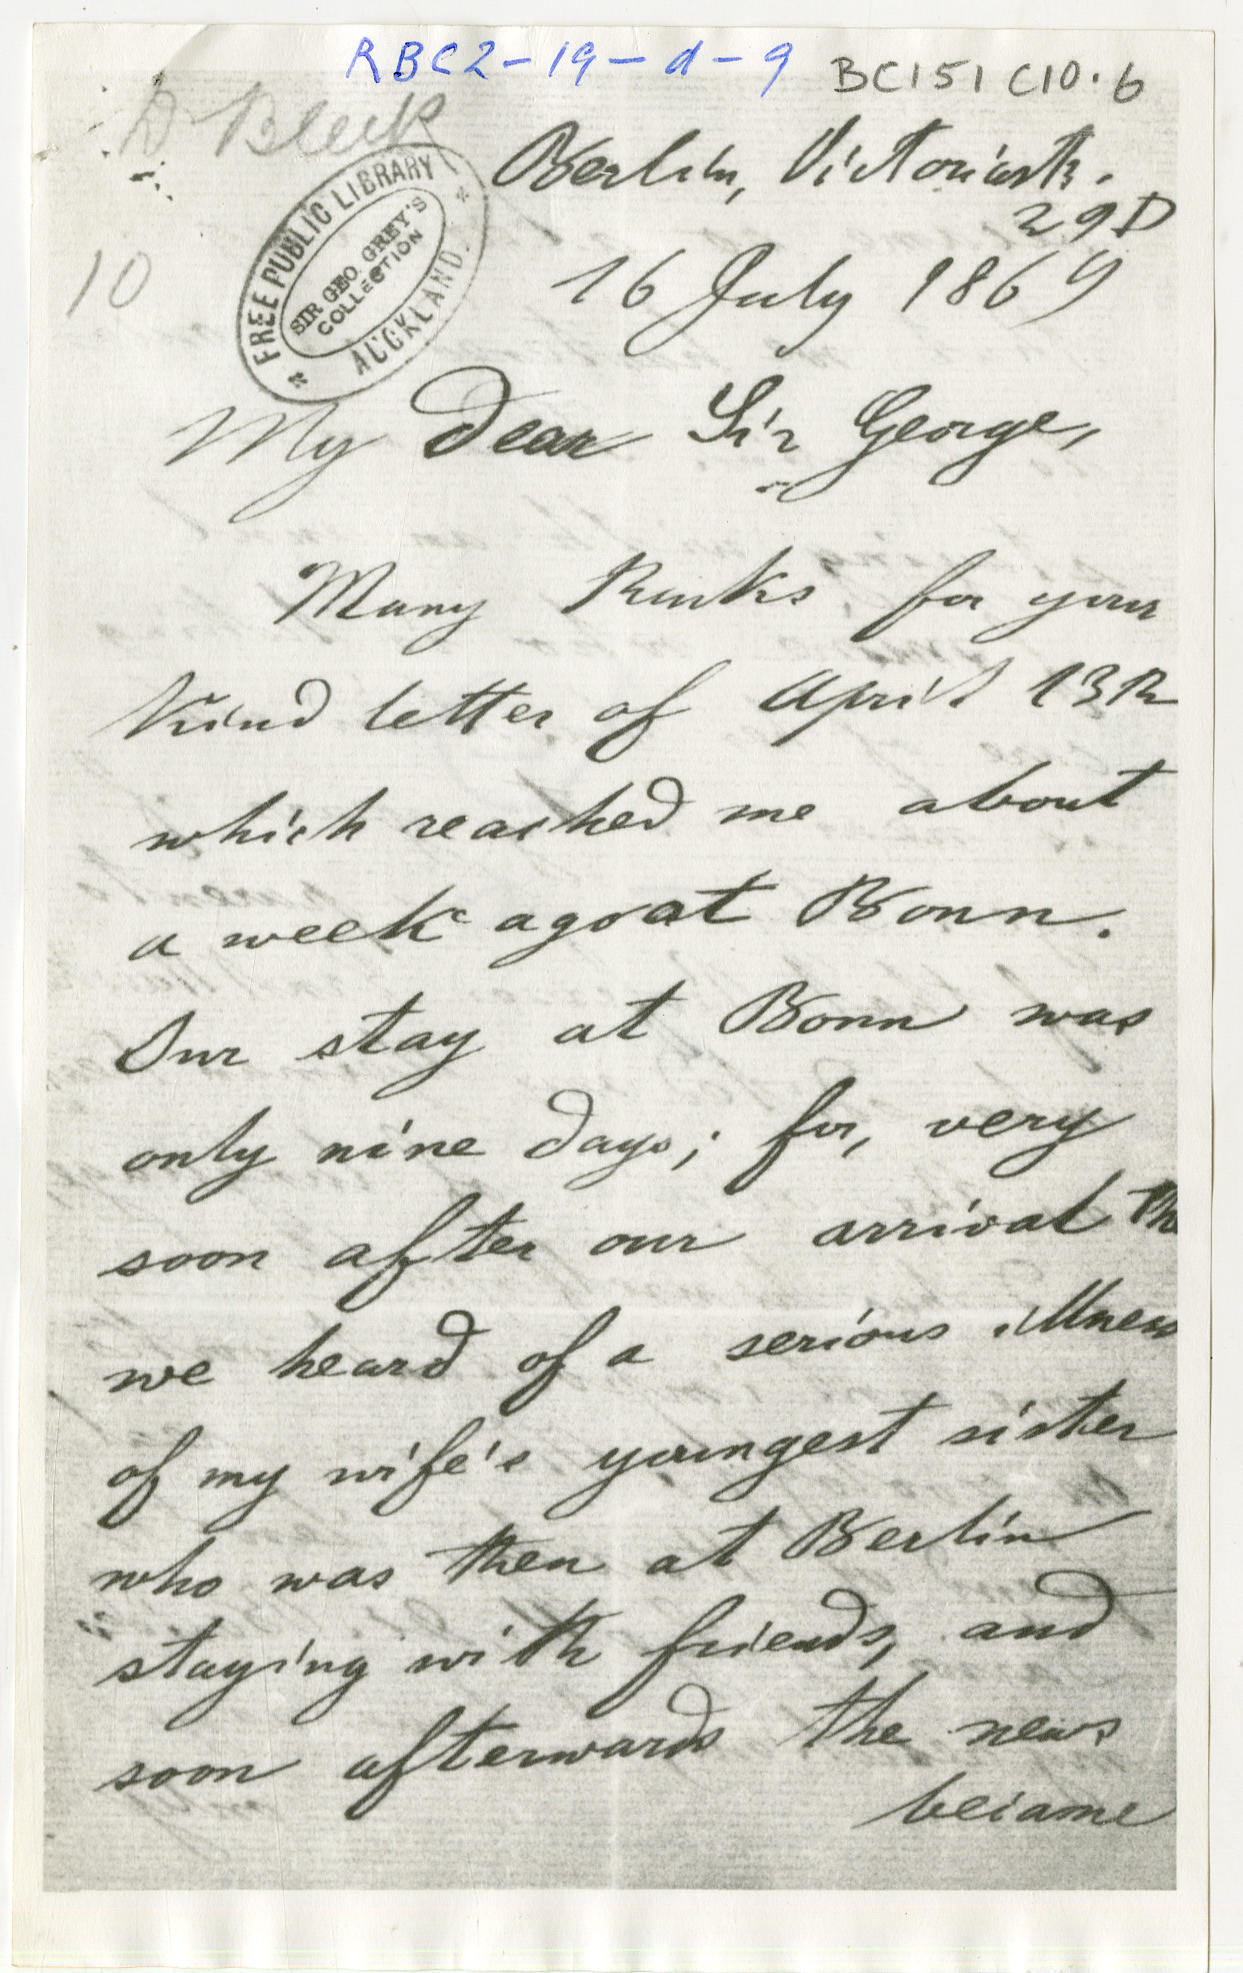 RBC2-19-d-9 BC151 C10.6
Dr Bleek
FREE PUBLIC LIBRARY
SIR GEO GREY'S
COLLECTION
AUCKLAND.
10
Berlin, Victoriastr.
29D
16 July 1869
My Dear Sir George,
Many thanks for your
kind letter of April 13th
which reached me about
a week ago at Bonn.
Our stay at Bonn was
only nine days; for, very
soon after our arrival
we heard of a serious illness
of my wife's youngest sister
who was then at Berlin
staying with friends, and
soon afterwards the news
became